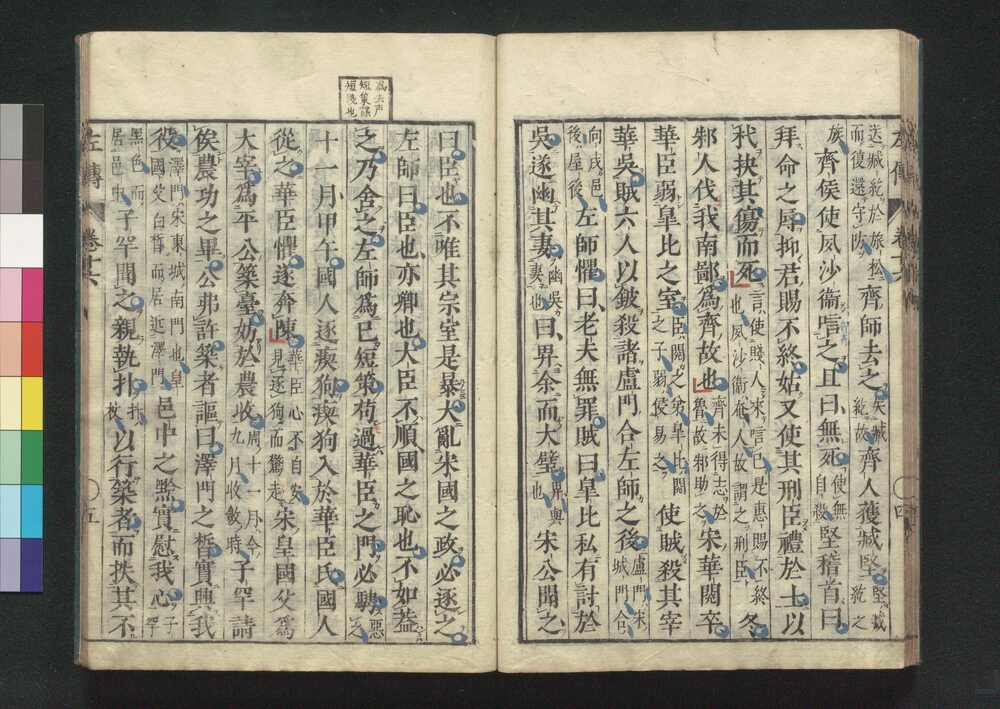 左傳 卷十六 四
送臧紇於旅松而復還守防齊師去之失臧紇故齊人獲臧堅堅臧紇之
族齊侯使夙沙衞唁之且曰無死使無自殺堅稽首曰
拜命之辱抑君賜不終姑又使其刑臣禮於士以
杙抉其傷而死言使賤人來唁己是惠賜不終也夙沙衞奄人故謂之刑臣冬
邾人伐我南鄙爲齊故也齊未得志於魯故邾助之宋華閱卒
華臣弱臯比之室臣閱之弟臯比閱之子弱侵易之使賊殺其宰
華吳賊六人以鈹殺諸盧門合左師之後盧門宋城門合
向戌邑後屋後左師懼曰老夫無罪賊曰臯比私有討於
吳遂幽其妻幽吳妻也曰畀余而大璧畀與也宋公聞之
爲去声
短策
曰臣也不唯其宗室是暴大亂宋國之政必逐之
左師曰臣也亦卿也大臣不順國之恥也不如蓋
之乃舍之左師爲己短策苟過華臣之門必騁惡之
十一月甲午國人逐瘈狗瘈狗入於華臣氏國人
從之華臣懼遂奔陳華臣心不自安見逐狗而驚走宋皇國父爲
大宰爲平公築臺妨於農收周十一月今九月收斂時子罕請
俟農功之畢公弗許築者謳曰澤門之晳實興我
役澤門宋東城南門也皇國父白晳而居近澤門邑中之黔實慰我心子罕
黑色而居邑中子罕聞之親執扑扑杖以行築者而抶其不
左傳 卷十六 五